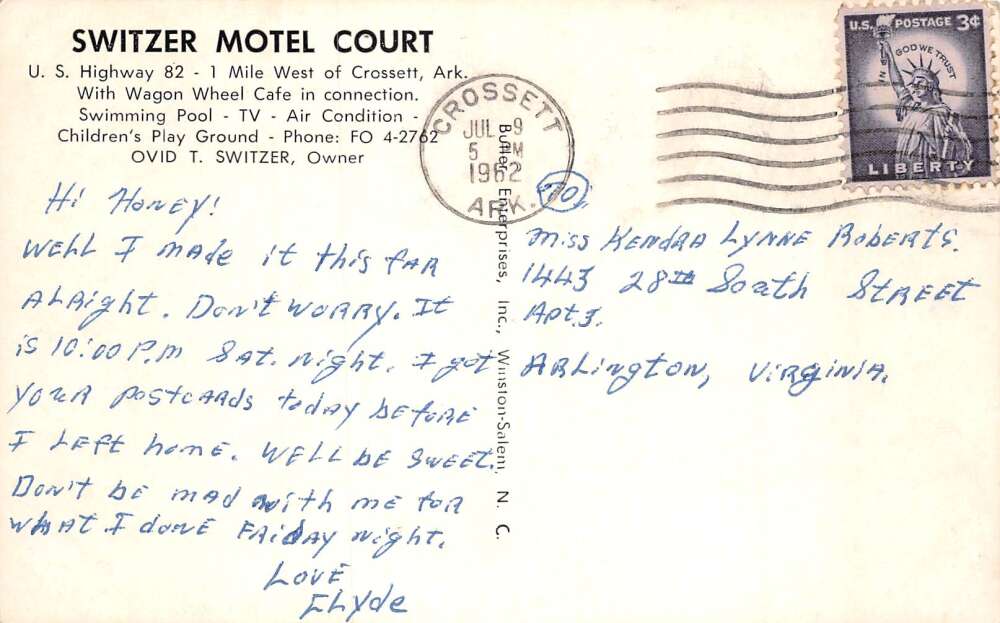 SWITZER MOTEL COURT
U. S. Highway 82 - 1 Mile West of Crossett, Ark.
With Wagon Wheel Cafe in connection.
Swimming Pool - TV - Air Condition -
Children's Play Ground - Phone: FO 4-2762
OVID T. SWITZER, Owner
Hi Honey!
WELL I MADE it this FAR
ALRight. Don't WORRy. It
is 10:00 P.M Sat. Night. I got
YOUR POSTCARDS today BEFORE
I LEFT home. WELL BE SWEET.
Don't BE MAD with ME FOR
WHAT I donE FRiDAY Night.
LOVE
CLyde
Butler Enterprises, Inc., Winston-Salem, N. C.
CROSSETT
JUL 9
5 PM
1962
ARK.
U.S. POSTAGE 3¢
IN GOD WE TRUST
LIBERTY
TO,
Miss KENDRA LYNNE ROBERTS.
1443 28th South STREET
Apt 3.
ARLington, VIRGINIA.